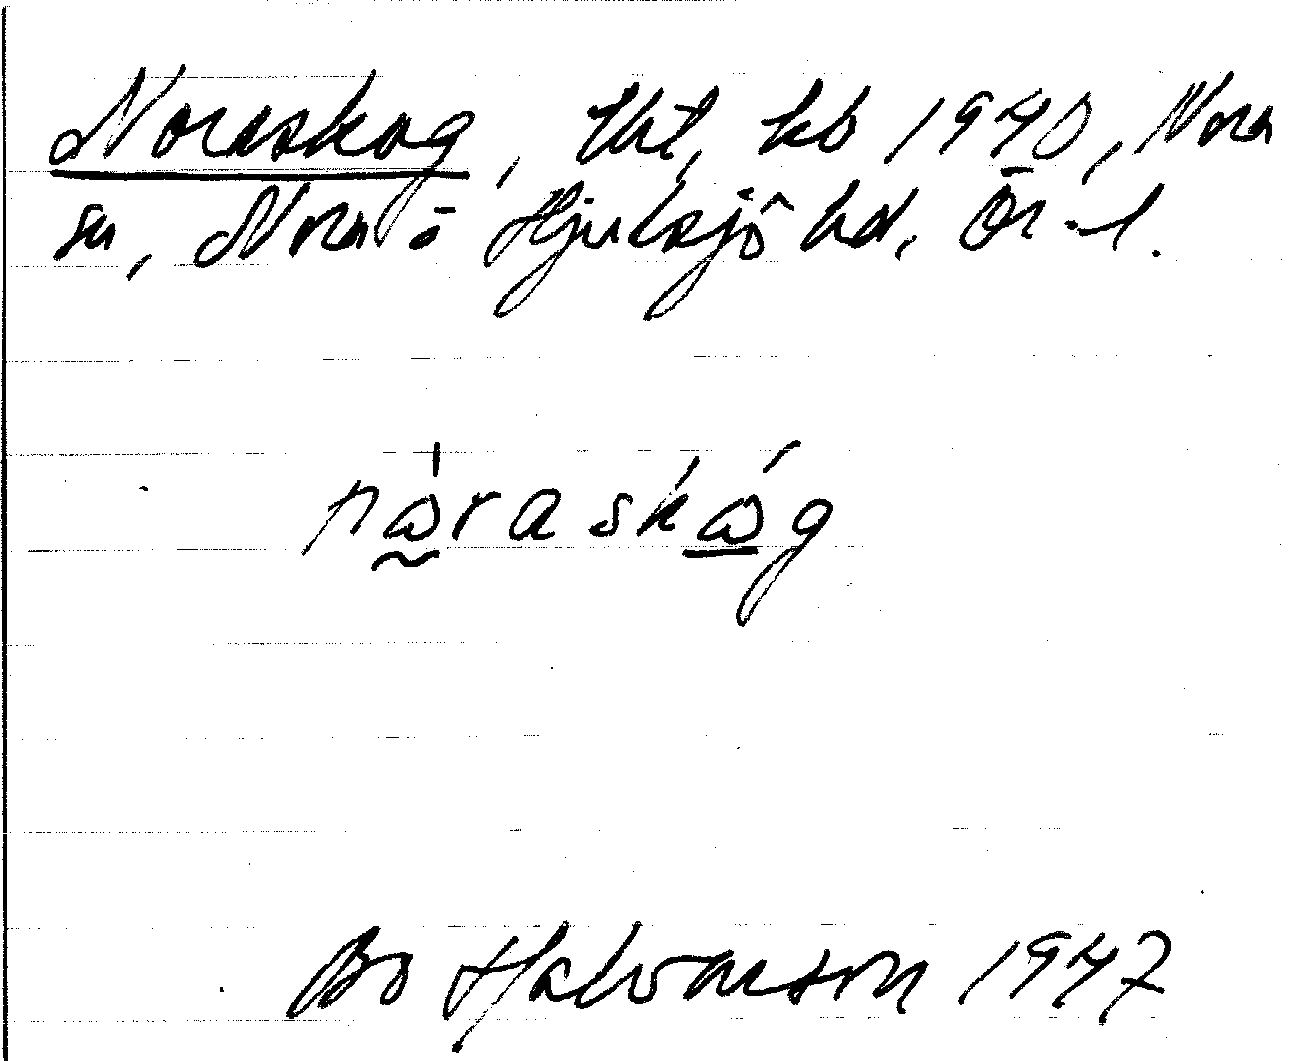 Noraskog, tht, kb 1940, Nora
sn, Nora o Hjulsjö hd, Ör-l.
nåraskåg
Bo Halvarson 1947